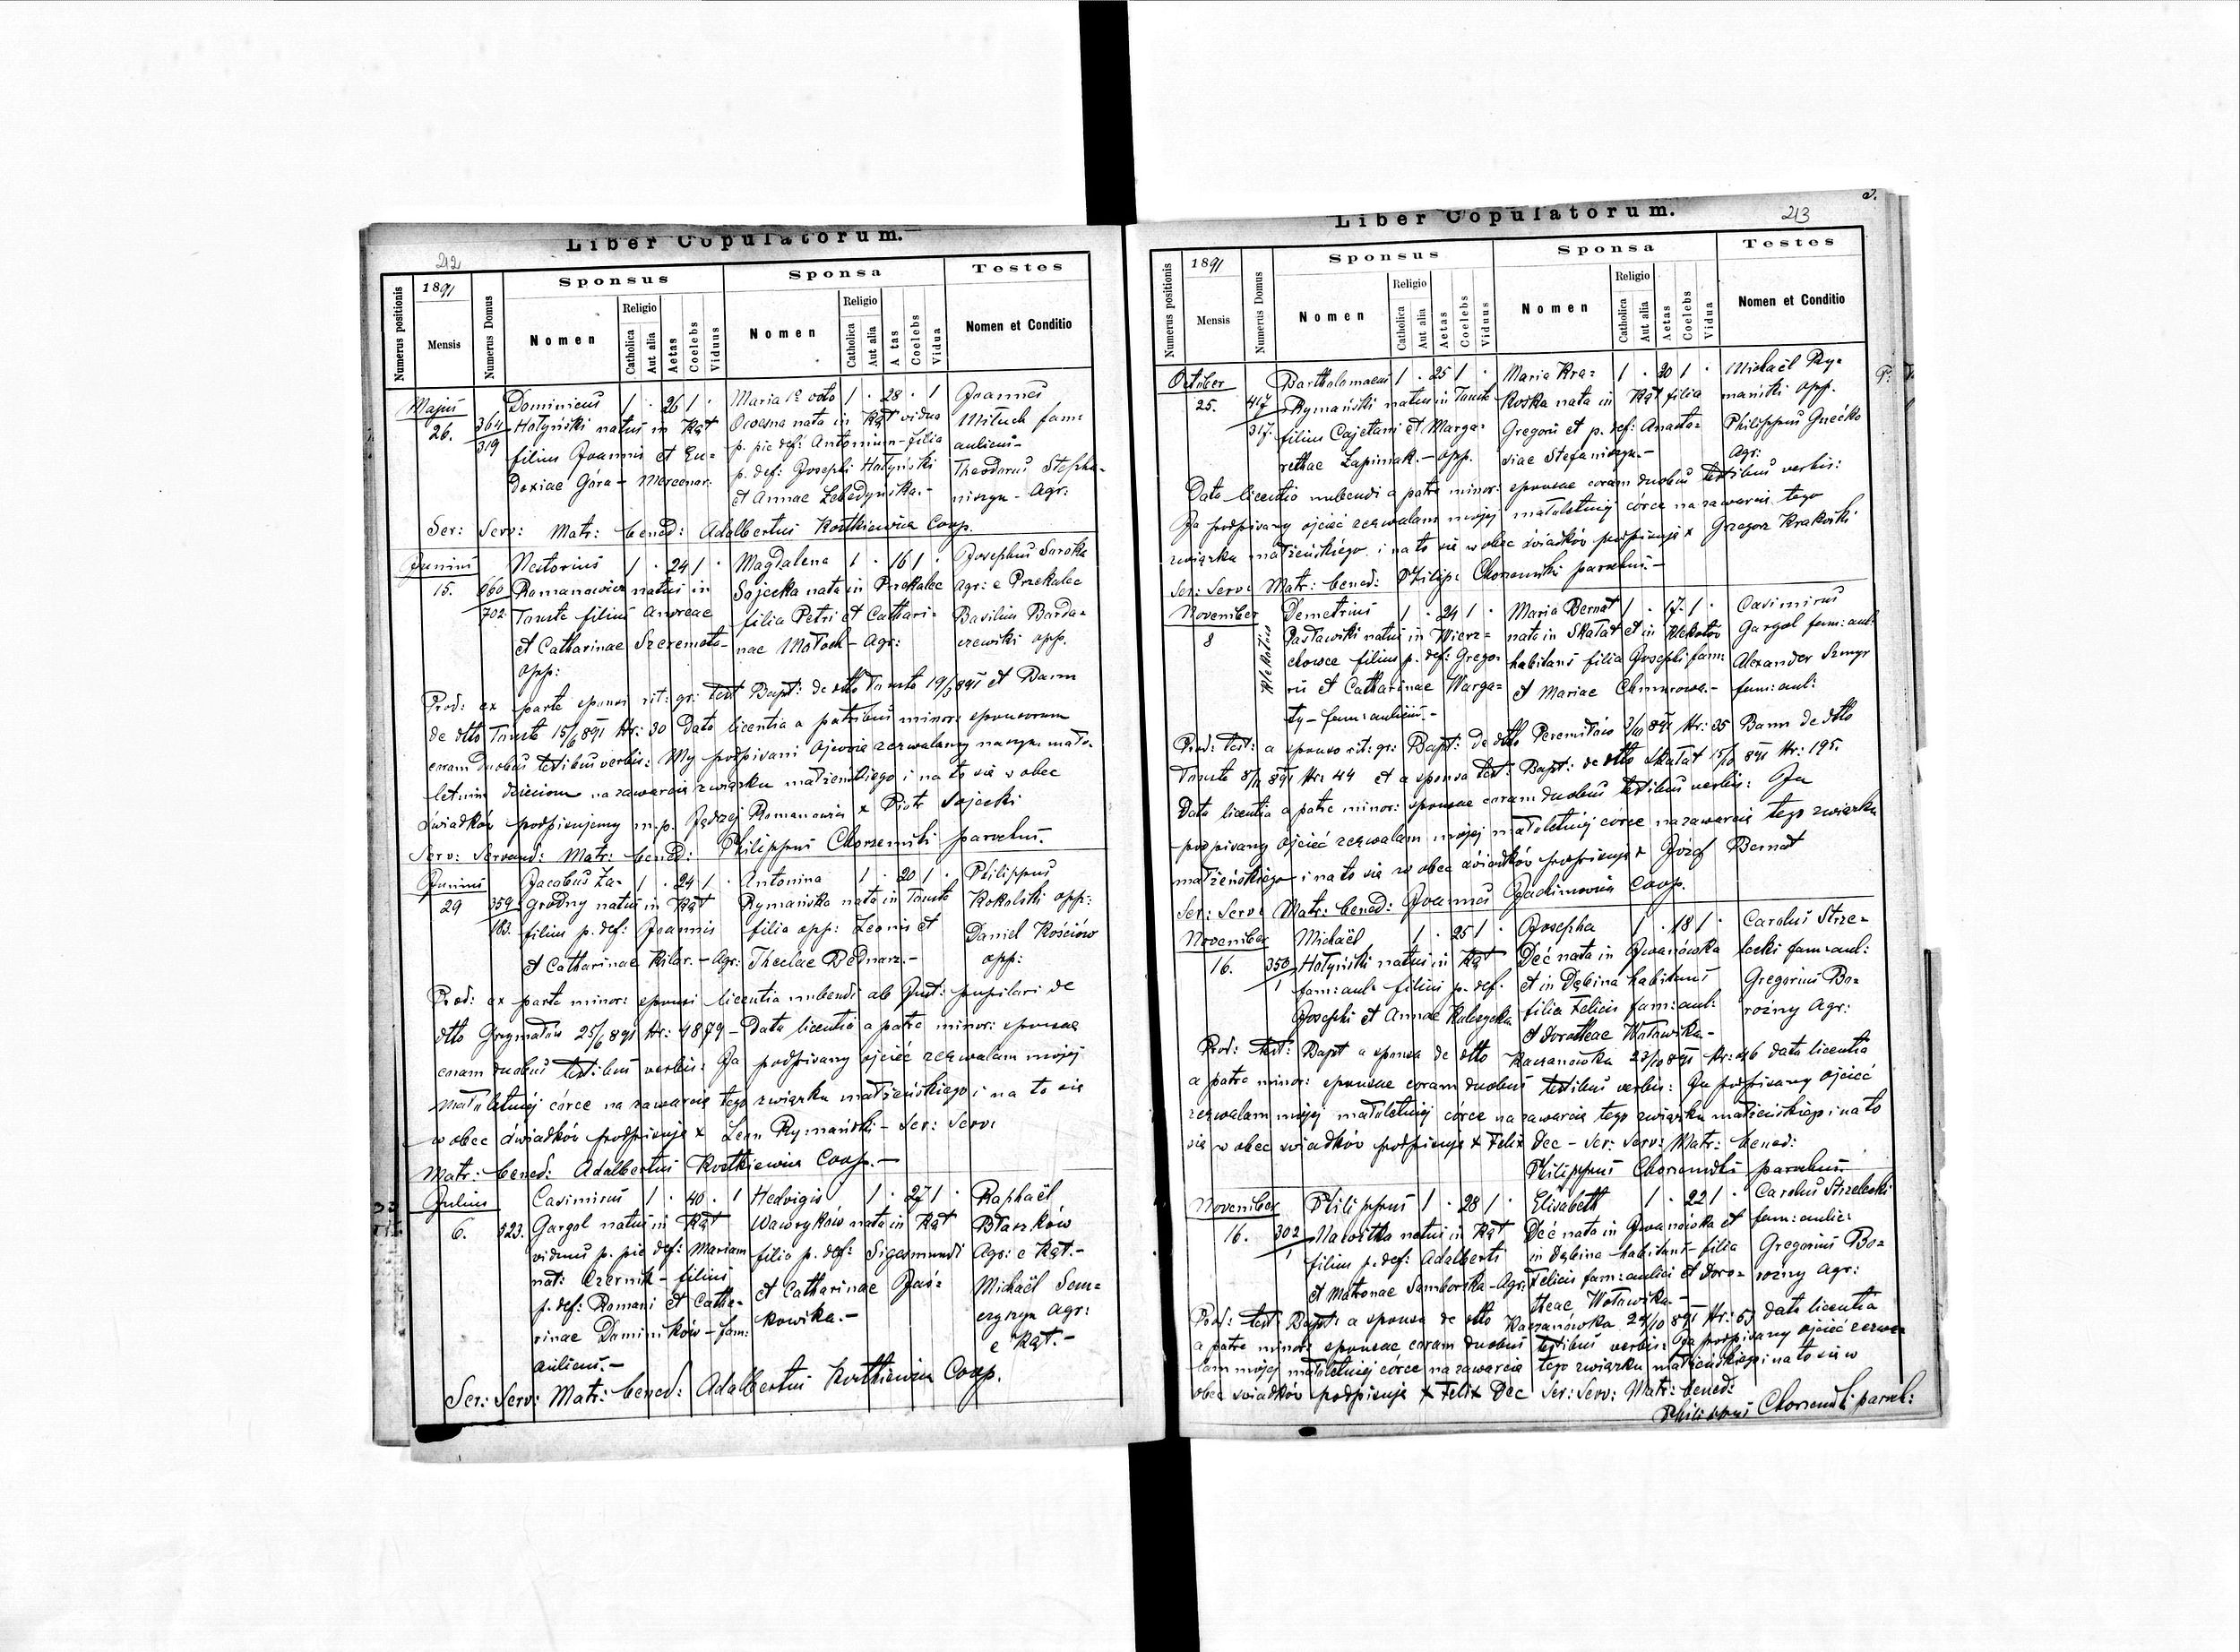 Liber Copulatorum.
212
1891
Numerus positionis
Mensis
Numerus Domus
Sponsus
Sponsa
Testes
Nomen
Religio
Catholica
Aut alia
Aetas
Coelebs
Viduus
Nomen
Religio
Catholica
Aut alia
Aetas
Coelebs
Vidua
Nomen et Conditio
Majus Dominicus 1 · 26 1 · Maria 1º voto 1 · 28 · 1 Joannes
26. 364 Hołyński natus in Kąt nata in Kąt vidua Mituch fam:
319 filius Joannis et Eu= p. pie def: Antonium - filia aulicus -
doxiae Góra - Mercenar: p. def: Josephi Hołyński Theodorus Stepha-
et Annae Lebedyńska. - niszyn - Agr:
Ser: Serv: Matr: bened: Adalbertus Kostkiewicz Coop.
Junius Nestorius 1 · 24 1 · Magdalena 1 · 16 1 · Josephus Soroka
15. 960 Romanowicz natus in Sojecka nata in Przekalec Agr: e Przekalec
702 Touste filius Andreae filia Petri et Cathari- Basilius Barda-
et Catharinae Szeremeta- nae Mołoch - Agr: czewski opp.
opp:
Prod: ex parte sponsi rit: gr: test Bapt: de dtto Touste 19/3 891 et Bann
de dtto Touste 15/6 891 Nr: 30 Data licentia a patribus minor: sponsorum
coram duobus testibus verbis: My podpisani ojcowie zezwalamy naszym mało-
letnim dzieciom na zawarcie związku małżeńskiego i na to się w obec
świadków podpisujemy m.p. Jędrzej Romanowicz x Piotr Sojecki
Serv: Servand: Matr: bened: Philippus Chorzemski parochus.
Junius Jacobus Za- 1 · 24 1 · Antonina 1 · 20 1 · Philippus
29 359 grodny natus in Kąt Rymańska nata in Touste Kokolski opp:
163. filius p. def: Joannis filia opp: Leonis et Daniel Kościów
et Catharinae Kilar. - Agr: Theclae Bednarz. - opp:
Prod: ex parte minor: sponsi licentia nubendi ab Jud: pupilari de
dtto Grzymałów 25/6 891 Nr: 4879 - Data licentia a patre minor: sponsae
coram duobus testibus verbis: Ja podpisany ojcieć zezwalam mojej
małoletniéj córce na zawarcie tego związku małżeńskiego i na to się
w obec świadków podpisuje x Leon Rymański - Ser: Serv:
Matr: bened: Adalbertus Kostkiewicz Coop. -
Julius Casimirus 1 · 40 · 1 Hedvigis 1 · 27 1 · Raphaël
6. 523. Gargol natus in Kąt Wawryków nata in Kąt Błaszków
viduus p. pie def: Mariam filia p. def: Sigismundi Agr: e Kąt. -
nat: Czernik - filius et Catharinae Jaś- Michaël Sem=
p. def: Romani et Catha- kowska. - czyszyn Agr:
rinae Dominików - fam: e Kąt. -
aulicus. -
Ser: Serv: Matr: bened: Adalbertus Kostkiewicz Coop.
Liber Copulatorum.
213
1891
Numerus positionis
Mensis
Numerus Domus
Sponsus
Sponsa
Testes
Nomen
Religio
Catholica
Aut alia
Aetas
Coelebs
Viduus
Nomen
Religio
Catholica
Aut alia
Aetas
Coelebs
Vidua
Nomen et Conditio
October Bartholomaeus 1 · 25 1 · Maria Kra= 1 · 20 1 · Michaël Ry=
25. 417 Rymański natus in Touste koska nata in Kąt filia mański opp.
317. filius Cajetani et Marga= Gregorii et p. def: Anasta= Philippus Gnećko
rethae Łapiniak. - opp. siae Stefaniszyn. - Agr:
Data licentia nubendi a patre minor: sponsae coram duobus testibus verbis:
Ja podpisany ojcieć zezwalam mojej małoletniéj córce na zawarcie tego
związku małżeńskiego i na to się w obec świadków podpisuje x Grzegorz Krakoski
Ser: Serv: Matr: bened: Philip: Chorzemski parochus. -
November Demetrius 1 · 24 1 · Maria Bernat 1 · 17 1 · Casimirus
8 Pasławski natus in Wierz= nata in Skałat et in habitans filia Josephi fam: Gargol fam: aul:
chowce filius p. def: Grego= et Mariae Chmurowa. - Alexander Szmyr
rii et Catharinae Warga= fam: aul:
ty - fam: aulicus. -
Prod: test: a sponso rit: gr: Bapt: de dtto Peremiłów 3/10 891 Nr: 35 Bann de dtto
Touste 8/11 891 Nr: 44 et a sponsa test: Bapt: de dtto Skałat 15/10 891 Nr: 195.
Data licentia a patre minor: sponsae coram duobus testibus verbis: Ja
podpisany ojcieć zezwalam mojej małoletniéj córce na zawarcie tego związku
małżeńskiego i na to się w obec świadków podpisuje x Józef Bernat
Ser: Serv: Matr: bened: Joannes Coop.
November Michaël 1 · 25 1 · Josepha 1 · 18 1 · Carolus Strze=
16. 350 Hołyński natus in Kąt Deć nata in Iwanówka lecki fam: aul:
1 fam: aul: filius p. def. et in Dębina habitans Gregorius Bo=
Josephi et Annae filia Felicis fam: aul: rozny Agr:
et Dorotheae Wotawska. -
Prod: test: Bapt a sponsa de dtto Kaczanówka 23/10 891 Nr: 46 data licentia
a patre minor: sponsae coram duobus testibus verbis: Ja podpisany ojcieć
zezwalam mojej małoletniej córce na zawarcie tego związku małżeńskiego i na to
się w obec świadków podpisuje x Felix Dec - Ser: Serv: Matr: bened:
Philippus Chorzemski parochus
November Philippus 1 · 28 1 · Elisabeth 1 · 22 1 · Carolus Strzelecki
16. 302 natus in Kąt Deć nata in Iwanówka et fam: aulic:
1 filius p. def: Adalberti in Dębina habitans - filia Gregorius Bo=
et Matronae Samborska - Agr: Felicis fam: aulici et Doro= rozny Agr:
theae Wotawska. -
Prod: test: Bapt: a sponsa de dtto Kaczanówka 24/10 891 Nr: 63 data licentia
a patre minor: sponsae coram duobus testibus verbis: Ja podpisany ojcieć zezwa=
lam mojej małoletniéj córce na zawarcie tego związku małżeńskiego i na to się w
obec świadków podpisuje x Felix Dec Ser: Serv: Matr: bened:
Philippus Chorzemski paroch: